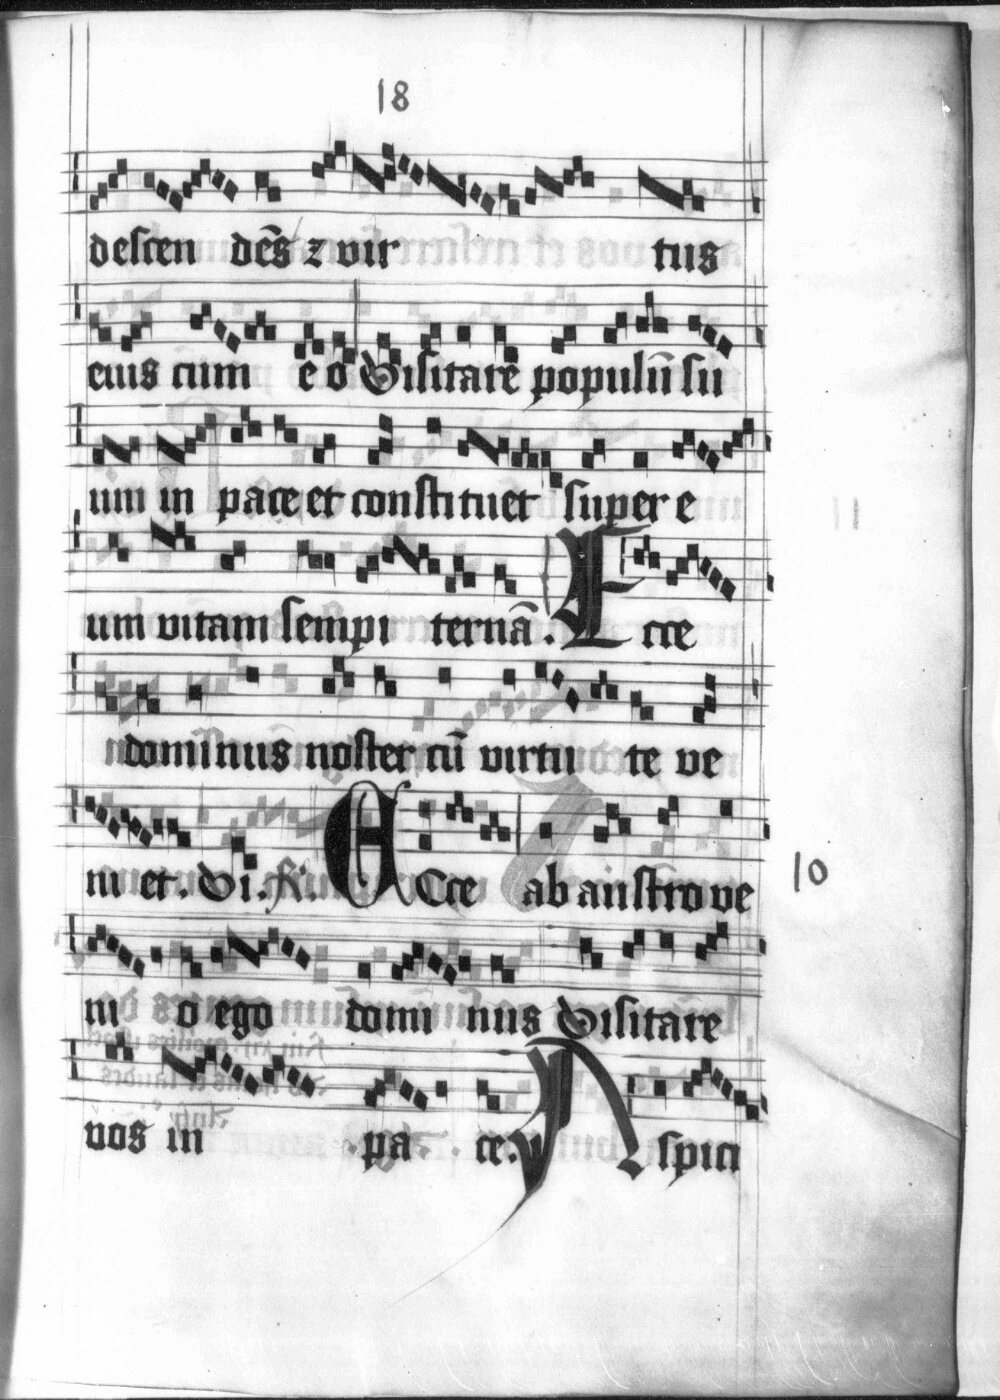 18
descen dēs ⁊ vir tus
eius cum e o Visitare populū su
um in pace et constituet super e
um vitam sempi ternā. E cce
dominus noster cū virtu te ve
ni et. Vi. R̃. E Cce ab austro ve
10
ni o ego domi nus Visitare
vos in pa ce. A spici